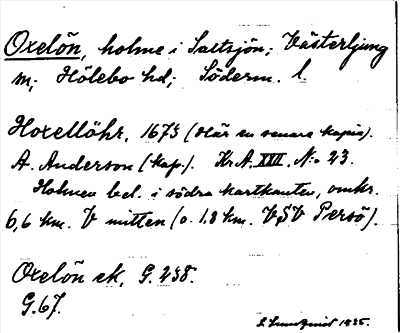 Oxelön, holme i Saltsjön; Västerljung
sn; Hölebo hd; Söderm. l.
Hoxellöhr, 1675 (här en senare kopia).
A. Anderson (kop.). K.A. XXII. N:o 23.
Holmen bel. i södra kartkanten, omkr.
6,6 km. V mitten (o. 1.8 km. VSV Persö).
Oxelön ek, G. 238.
G. 67.
1935.